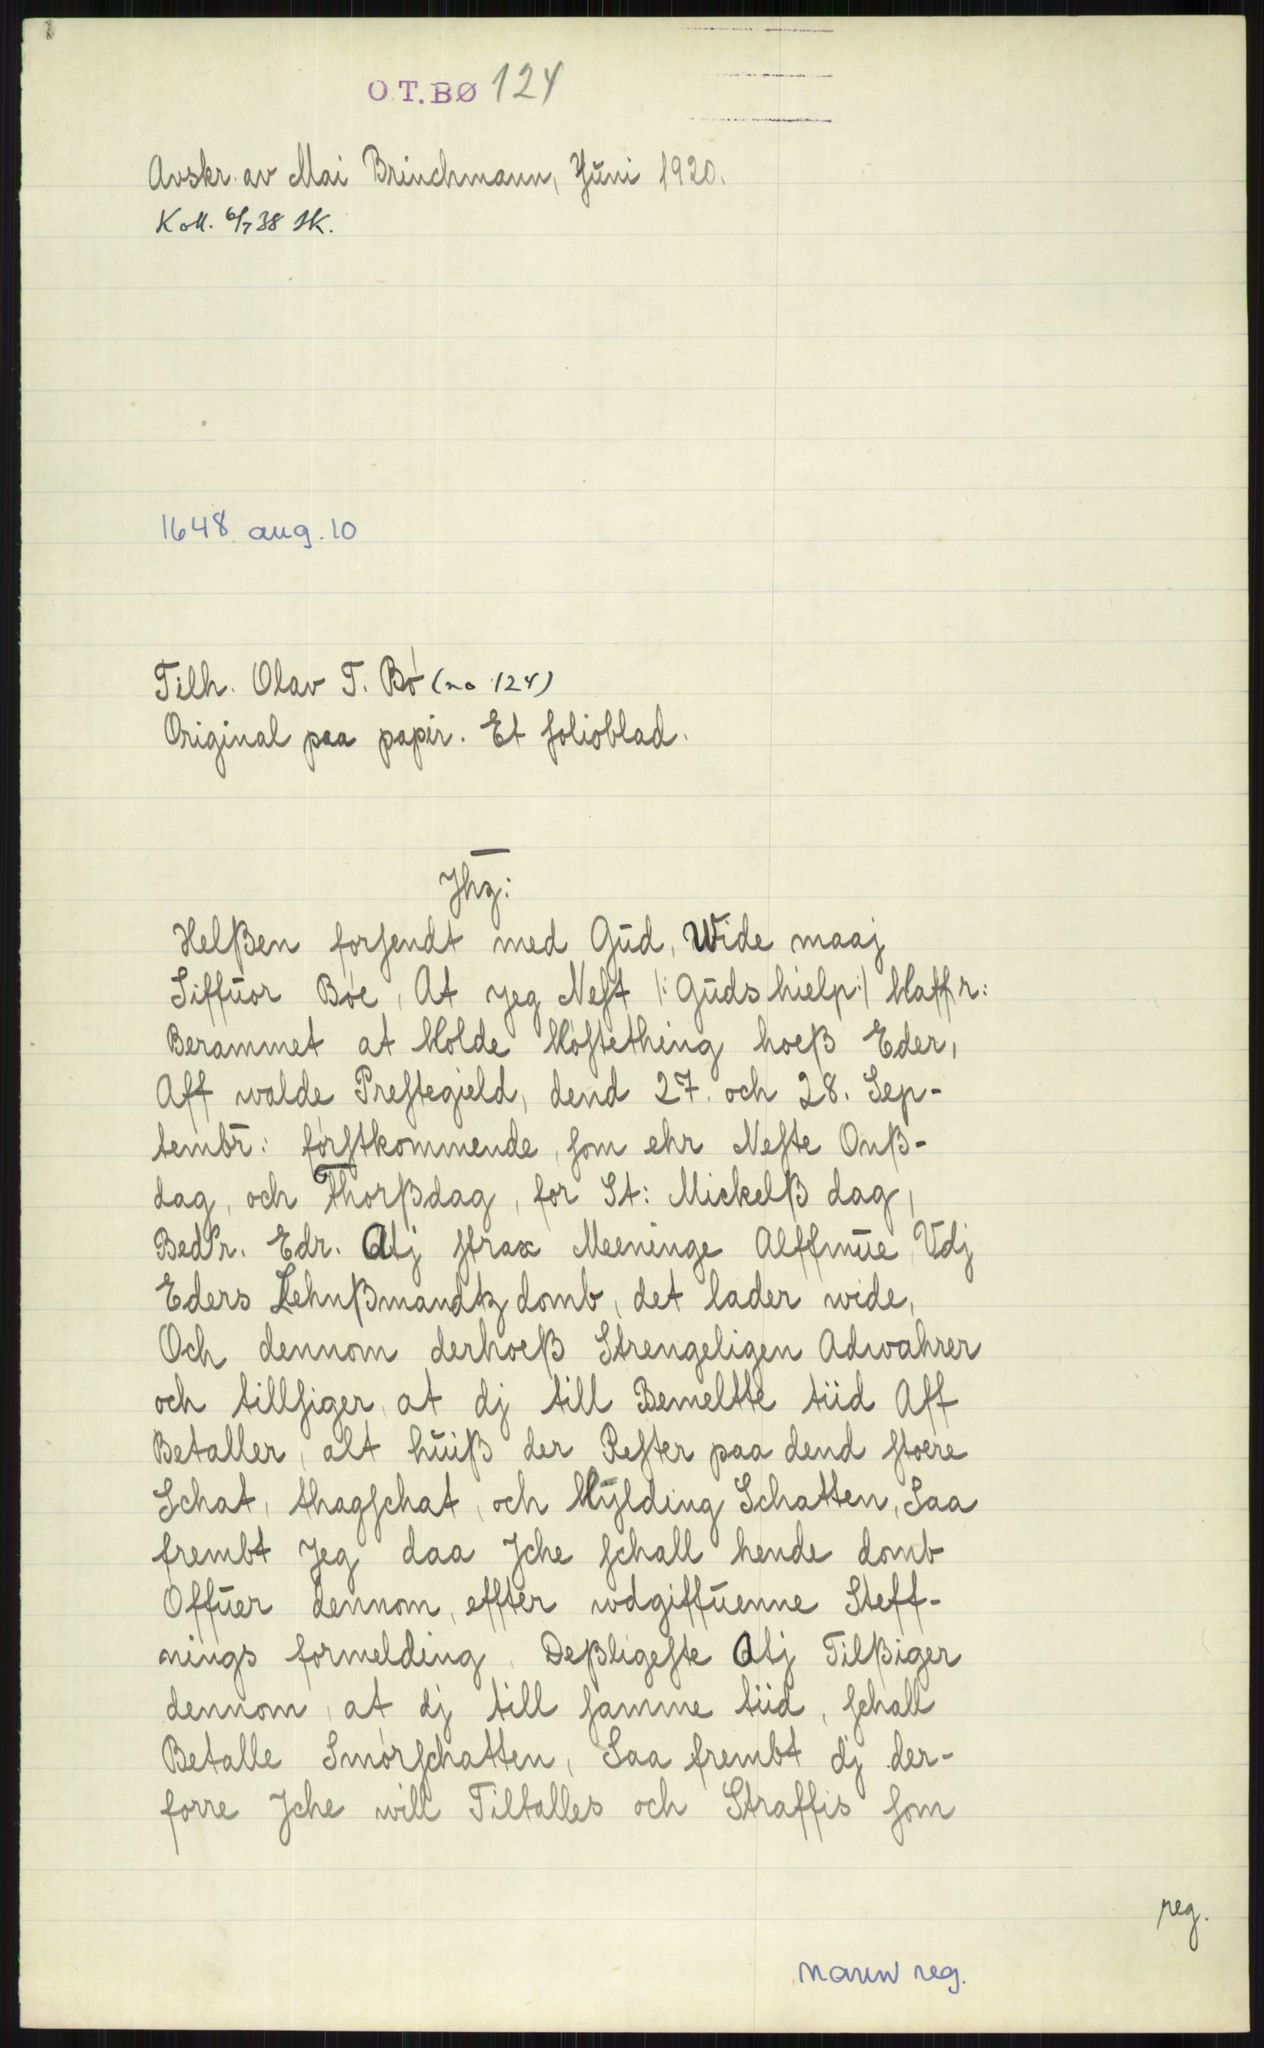 O.T.BØ 124
Avskr. av Mai Brinchmann, Juni 1920.
Koll. 6/7 38 SK.
1648 aug. 10
Tilh. Olav T. Bö (no 124)
Original paa papir. Et folioblad.
Jhz:
Helßen forsendt med Gud, Wide maaj
Siffuor Böe, At Jeg Nest /: Guds hielp:/ Haffr:
Berammet at Holde Höstething hoeß Eder,
Aff walde Prestegield, dend 27. och 28. Sep-
tembr: förstkommende, som ehr Neste Onß-
dag, och Thorßdag, for St: Mickelß dag,
Bedr. Edr. Atj strax Meeninge Allmue, Vdj
Eders Lehnßmandtz domb, det lader wide,
Och dennom derhoeß Strengeligen Adwahrer
och tillsiger, at dj till Bemeltte tiid Aff
Betaller, alt huiß der Rester paa dend stoere
Schat, thagschat, och Hylding Schatten, Saa
frembt Jeg daa Jche schall hende domb
Offuer dennom, effter wdgiffuenne Steff-
nings formelding. Deßligeste Atj Tilßiger
dennom, at dj till samme tiid, schall
Betalle Smörschatten, Saa frembt dj der-
forre Jche will Tiltalles och Straffis som
reg.
navn reg.